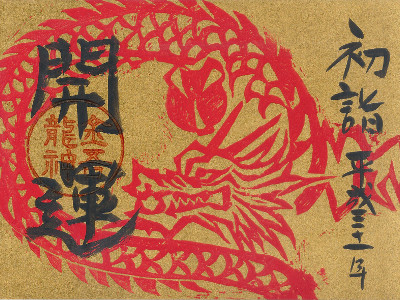 初詣 平成三十一年
開運
金吾龍神